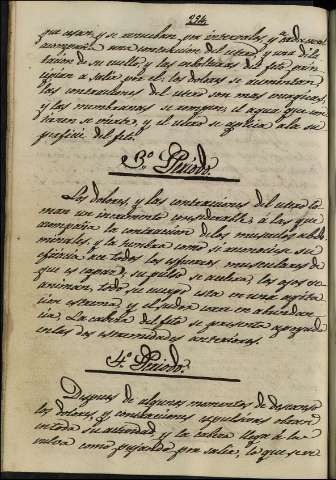 224
que cesan y se renuevan por intervalos, y a cada uno
acompaña una contraccion del utero, y una dila-
tacion de su cuello, y las cubiertas del feto prin-
cipian a salir por el: los dolores se aumentan,
las contracciones del utero son mas energicas,
y las membranas se rompen; el agua que con-
tienen se vierte, y el utero se aplica a la su-
perficie del feto.
3.º Periodo.
Los dolores, y las contracciones del utero to-
man un incremento considerable, a las que
acompaña la contraccion de los musculos abdo-
minales, y la hembra como si conociese su
eficacia hace todos los esfuerzos musculares de
que es capaz, su pulso se acelera, los ojos se
animan, todo su cuerpo esta en una agita-
cion estrema, y el sudor corre en abundan-
cia. La cabeza del feto se presenta apoyada
en las dos estremidades anteriores.
4.º Periodo.
Despues de algunos momentos de descanso
los dolores, y contracciones espulsivas obran
en toda su actividad, y la cabeza llega á la
vulva como pujando por salir, lo que se ve